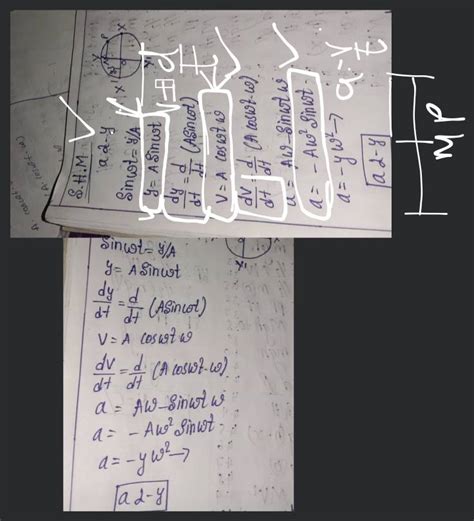 S.H.M
a α -y
Sinωt = y/A
y = A Sinωt
dy/dt = d/dt (A Sinωt)
V = A cosωt ω
dV/dt = d/dt (A cosωt-ω)
a = Aω-Sinωt ω
a = -Aω² Sinωt
a = -yω² →
a α -y
a = V/t
M P
Sinωt = y/A
y = A Sinωt
dy/dt = d/dt (ASinωt)
V = A cosωt ω
dV/dt = d/dt (A cosωt-ω)
a = Aω-Sinωt ω
a = -Aω² Sinωt
a = -yω² →
a α -y